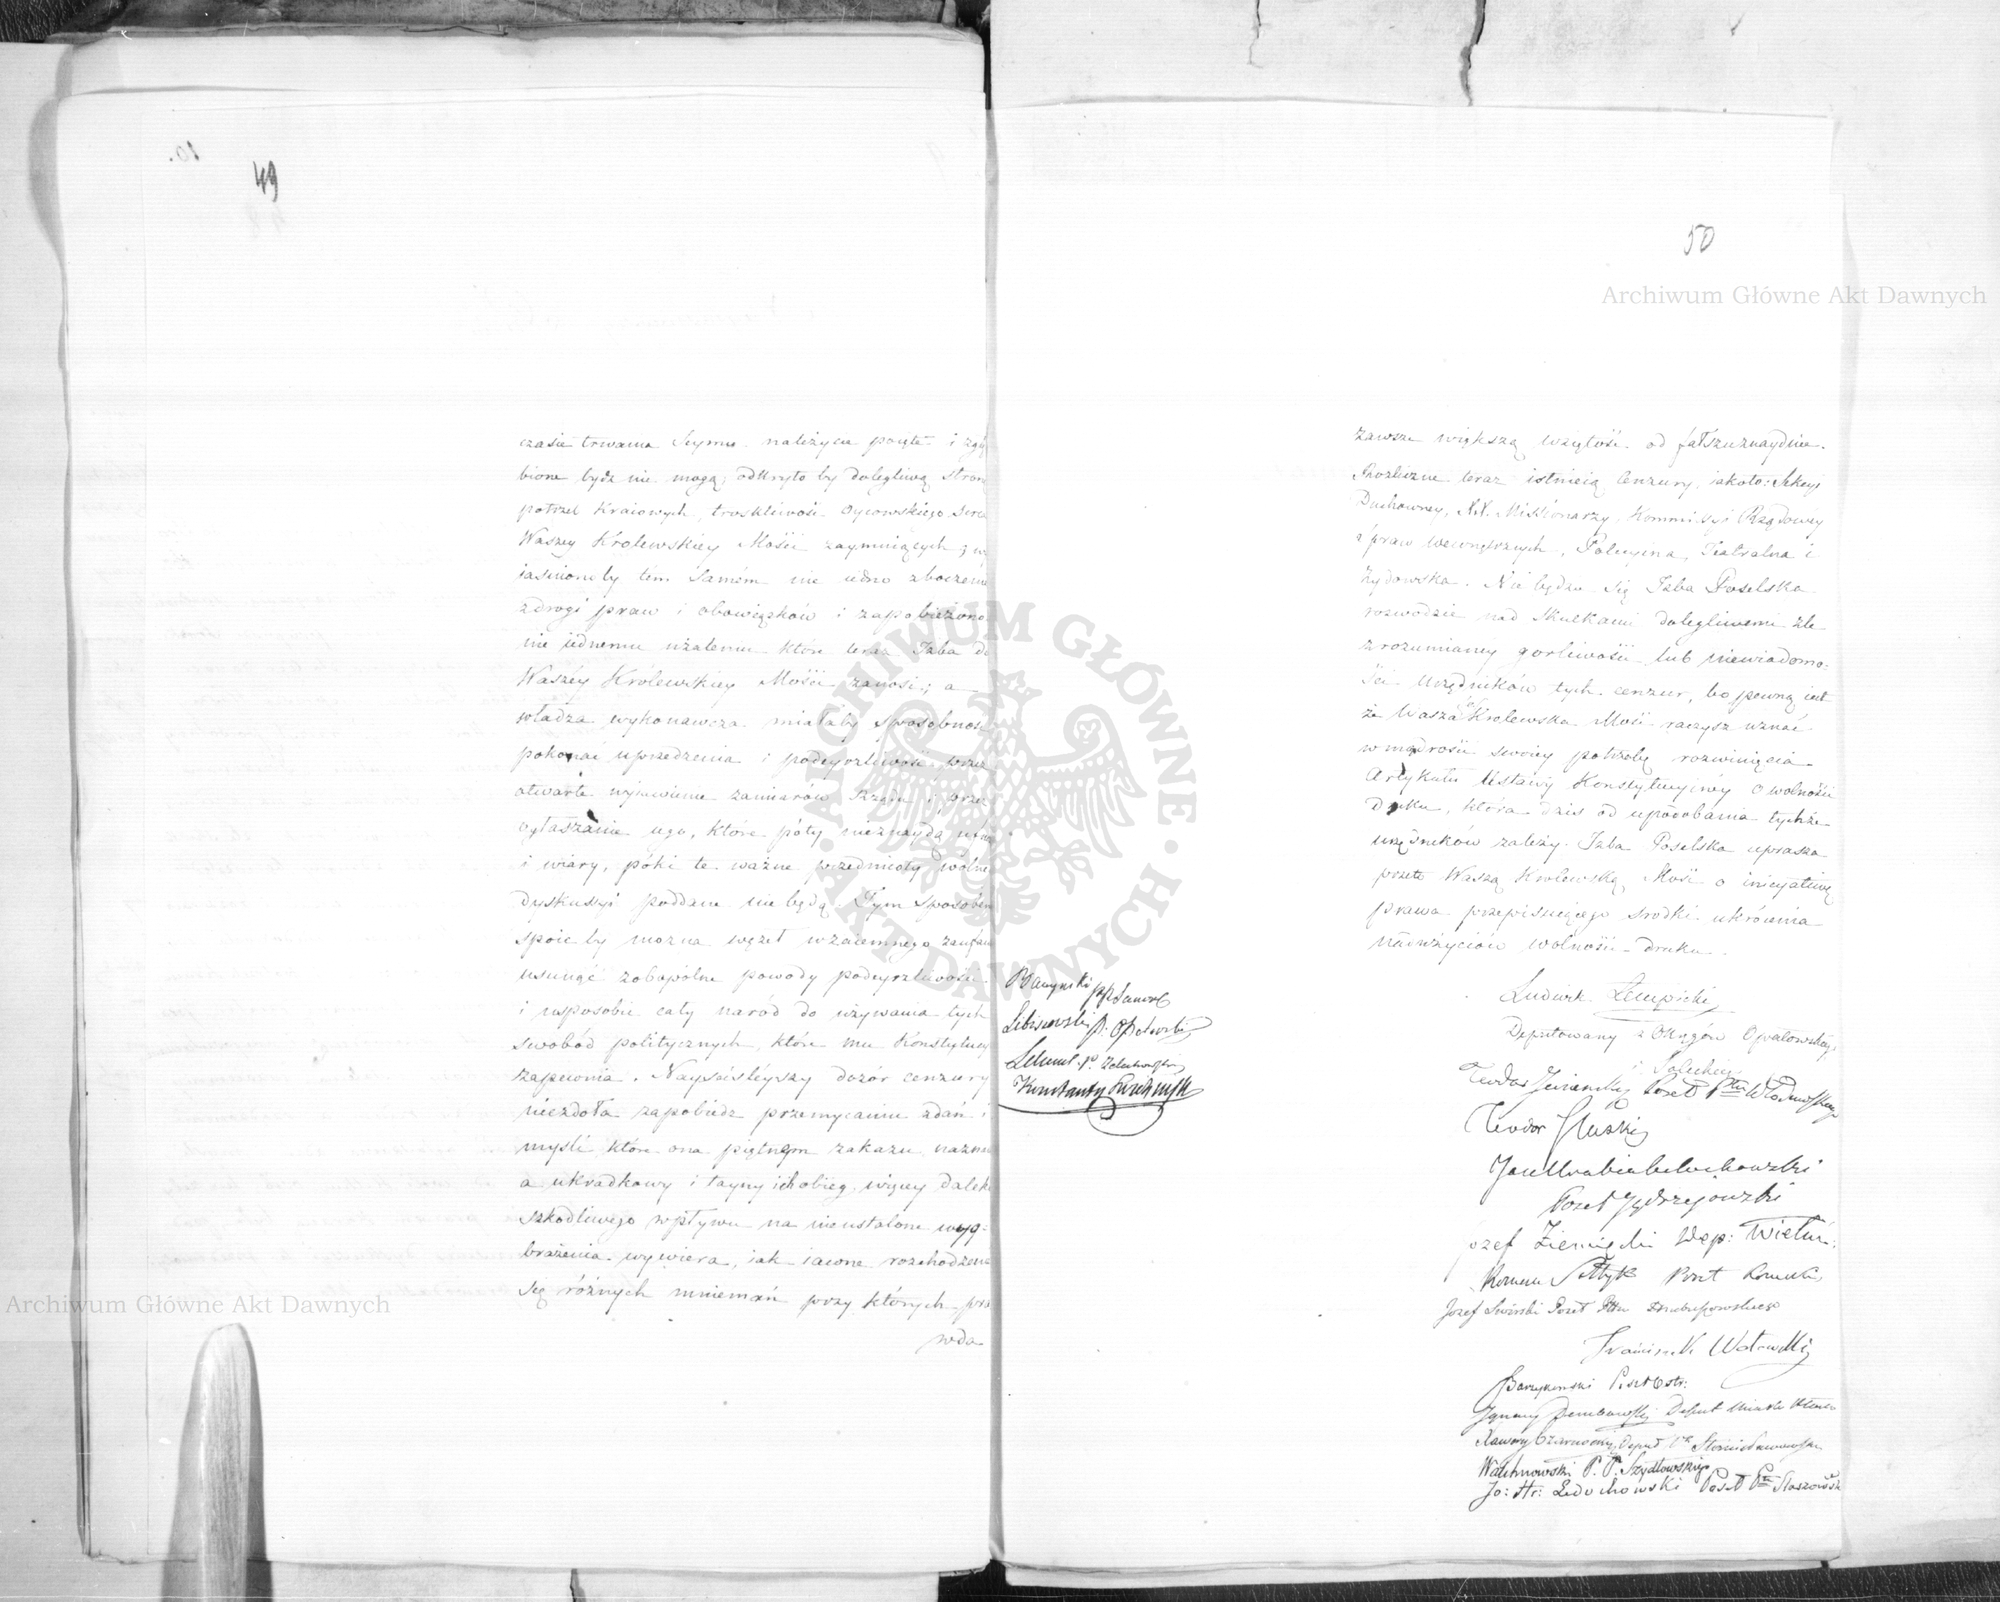 49
czasie trwania Seymu należycie poięte i zgłę
bione bydź nie mogą, odkryto by dolegliwą stronę
potrzeb Kraiowych, troskliwość Oycowskiego Serca
Waszey Krolewskiey Mości zaymuiących; wy
iaśniono by tém samém nie iedno zboczenie
z drogi praw i obowiązków i zapobieżono
nie iednemu użaleniu które teraz Izba do
Waszéy Królewskiey Mości zanosi; a
władza wykonawcza miałaby sposobność
pokonać uprzedzenia i podeyrzliwość przez
otwarte wyiawienie zamiarów Rządu i przez
ogłaszanie ugo, które póty nieznaydą ufn
i wiary, póki te ważne przedmioty wolne
dyskussyi poddane nie będą. Tym sposobem
spoić by można węzeł wzaiemnego zaufan
usunąć zobopólne powody podeyrzliwości
i usposobić cały naród do używania tych
swobód politycznych, które mu Konstytucya
zapewnia. Nayściśleyszy dozór cenzury
niezdoła zapobiedz przemycaniu zdań i
myśli, które ona piętnem zakazu nazna
a ukradkowy i tayny ich obieg, więcey dalek
szkodliwego wpływu na nieustalone wyo-
brażenia wywiera, iak iawne rozchodzenie
się różnych mniemań przy których pra
wda
50
zawsze większą wziętość od fałszu znaydzie.
Rozliczne teraz istnieią Cenzury, iakoto: Sekcyi
Duchowney, XX. Missionarzy, Kommissyi Rządowey
i praw wewnętrznych, Policyina, Teatralna i
Żydowska. Nie będzie się Izba Poselska
rozwodzić nad skutkami dolegliwemi źle
zrozumianey gorliwości lub niewiadomo-
ści Urzędników tych cenzur, bo pewną iest
że Wasza Krolewska Mość raczysz uznać
w mądrości swoiey potrzebę rozwinięcia
Artykułu Ustawy Konstytucyiney o wolności
Druku, która dziś od upodobania tychże
urzędników zależy. Izba Poselska uprasza
przeto Waszą Krolewską Mość o inicyatiwę
prawa przepisuiącego srodki ukrócenia
nadużyciów wolności druku.
Ludwik Łempicki
Deputowany z Okręgów Opatowskiego
i Soleckiego
Teodor Jasieński Poseł Ptu Włodawskiego
Teodor Słuski
Jan Hrabia Ledochowski
Poseł Jędrzejowski
Józef Ziemięcki Dep: Wieluń:
Roman Sołtyk Poseł Konecki
Jozef Swirski Poseł Ptu Hrubieszowskiego
Franciszek Wołowski
Barzykowski Poseł Ostr:
Ignacy Dembowski Deput Miasta
Xawery Czarnocki Deput Ptu Stanisławowskiego
Walchnowski P. P. Szydłowskiego
Jo: Hr: Ledochowski Poseł Ptu Staszowsk
Baczyński
Libiszowski P. Opoczyński
Konstanty Świdziński
Archiwum Główne Akt Dawnych
Archiwum Główne Akt Dawnych
ARCHIWUM GŁÓWNE
AKT DAWNYCH